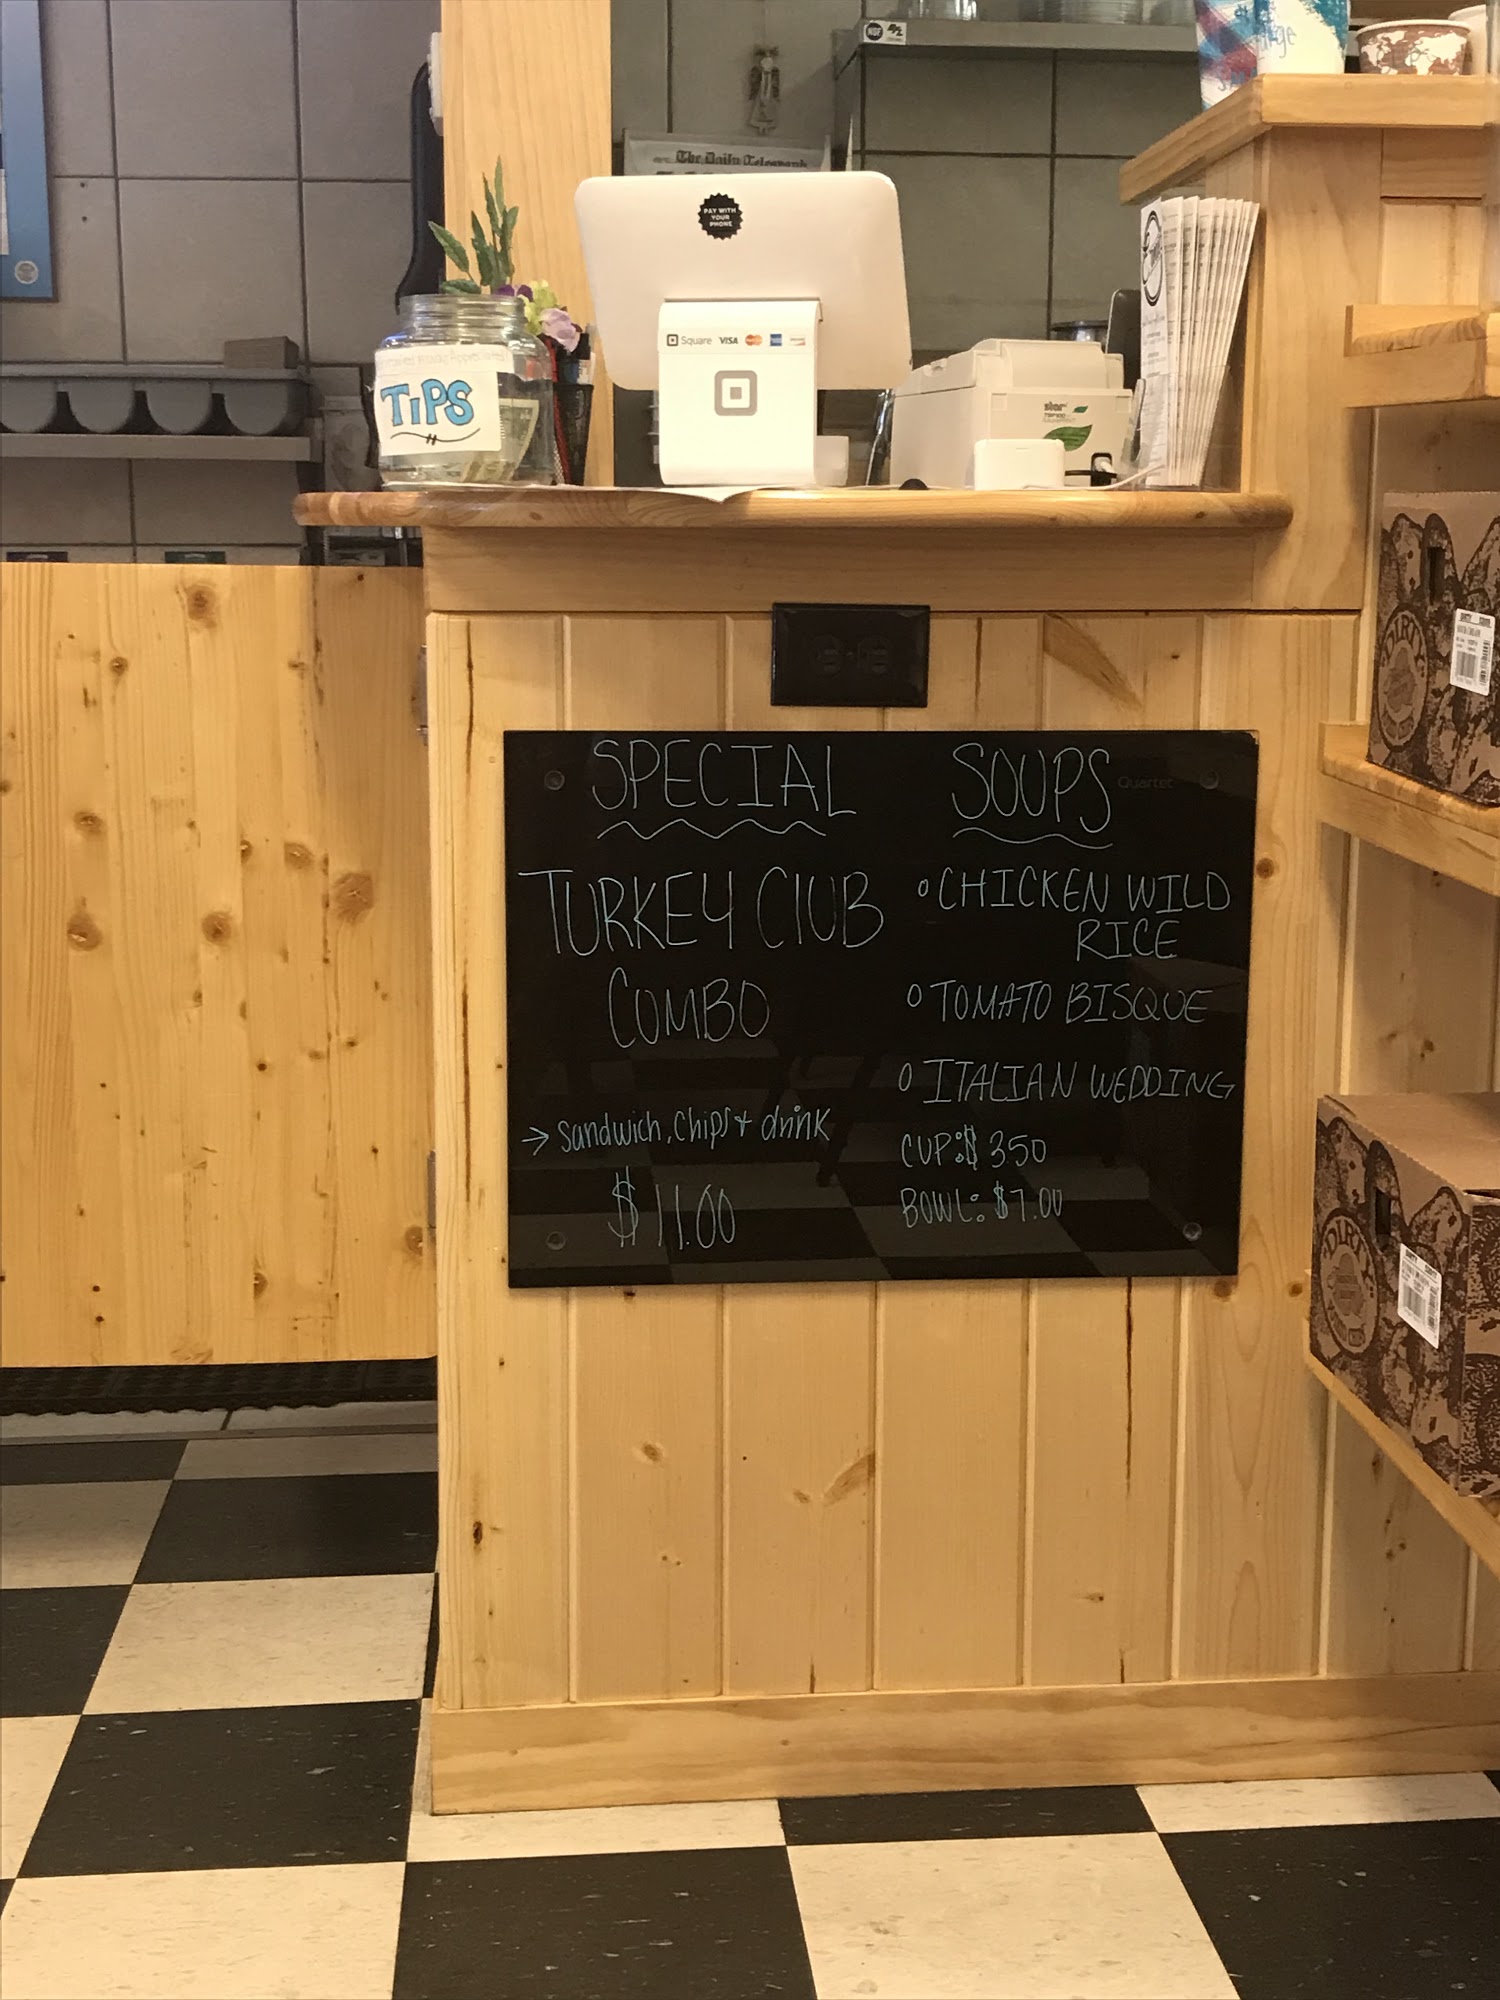 The Daily Telegraph
PAY WITH
YOUR
PHONE
Square VISA
TiPS
star
SPECIAL
TURKEY ClUB
COMBO
→ sandwich, chips + drink
$11.00
SOUPS
Quartet
° CHICKEN WILD
RICE
° TOMATO BISQUE
° ITALIAN WEDDING
CUP: $ 350
BOWL: $7.00
DIRTY
DIRTY